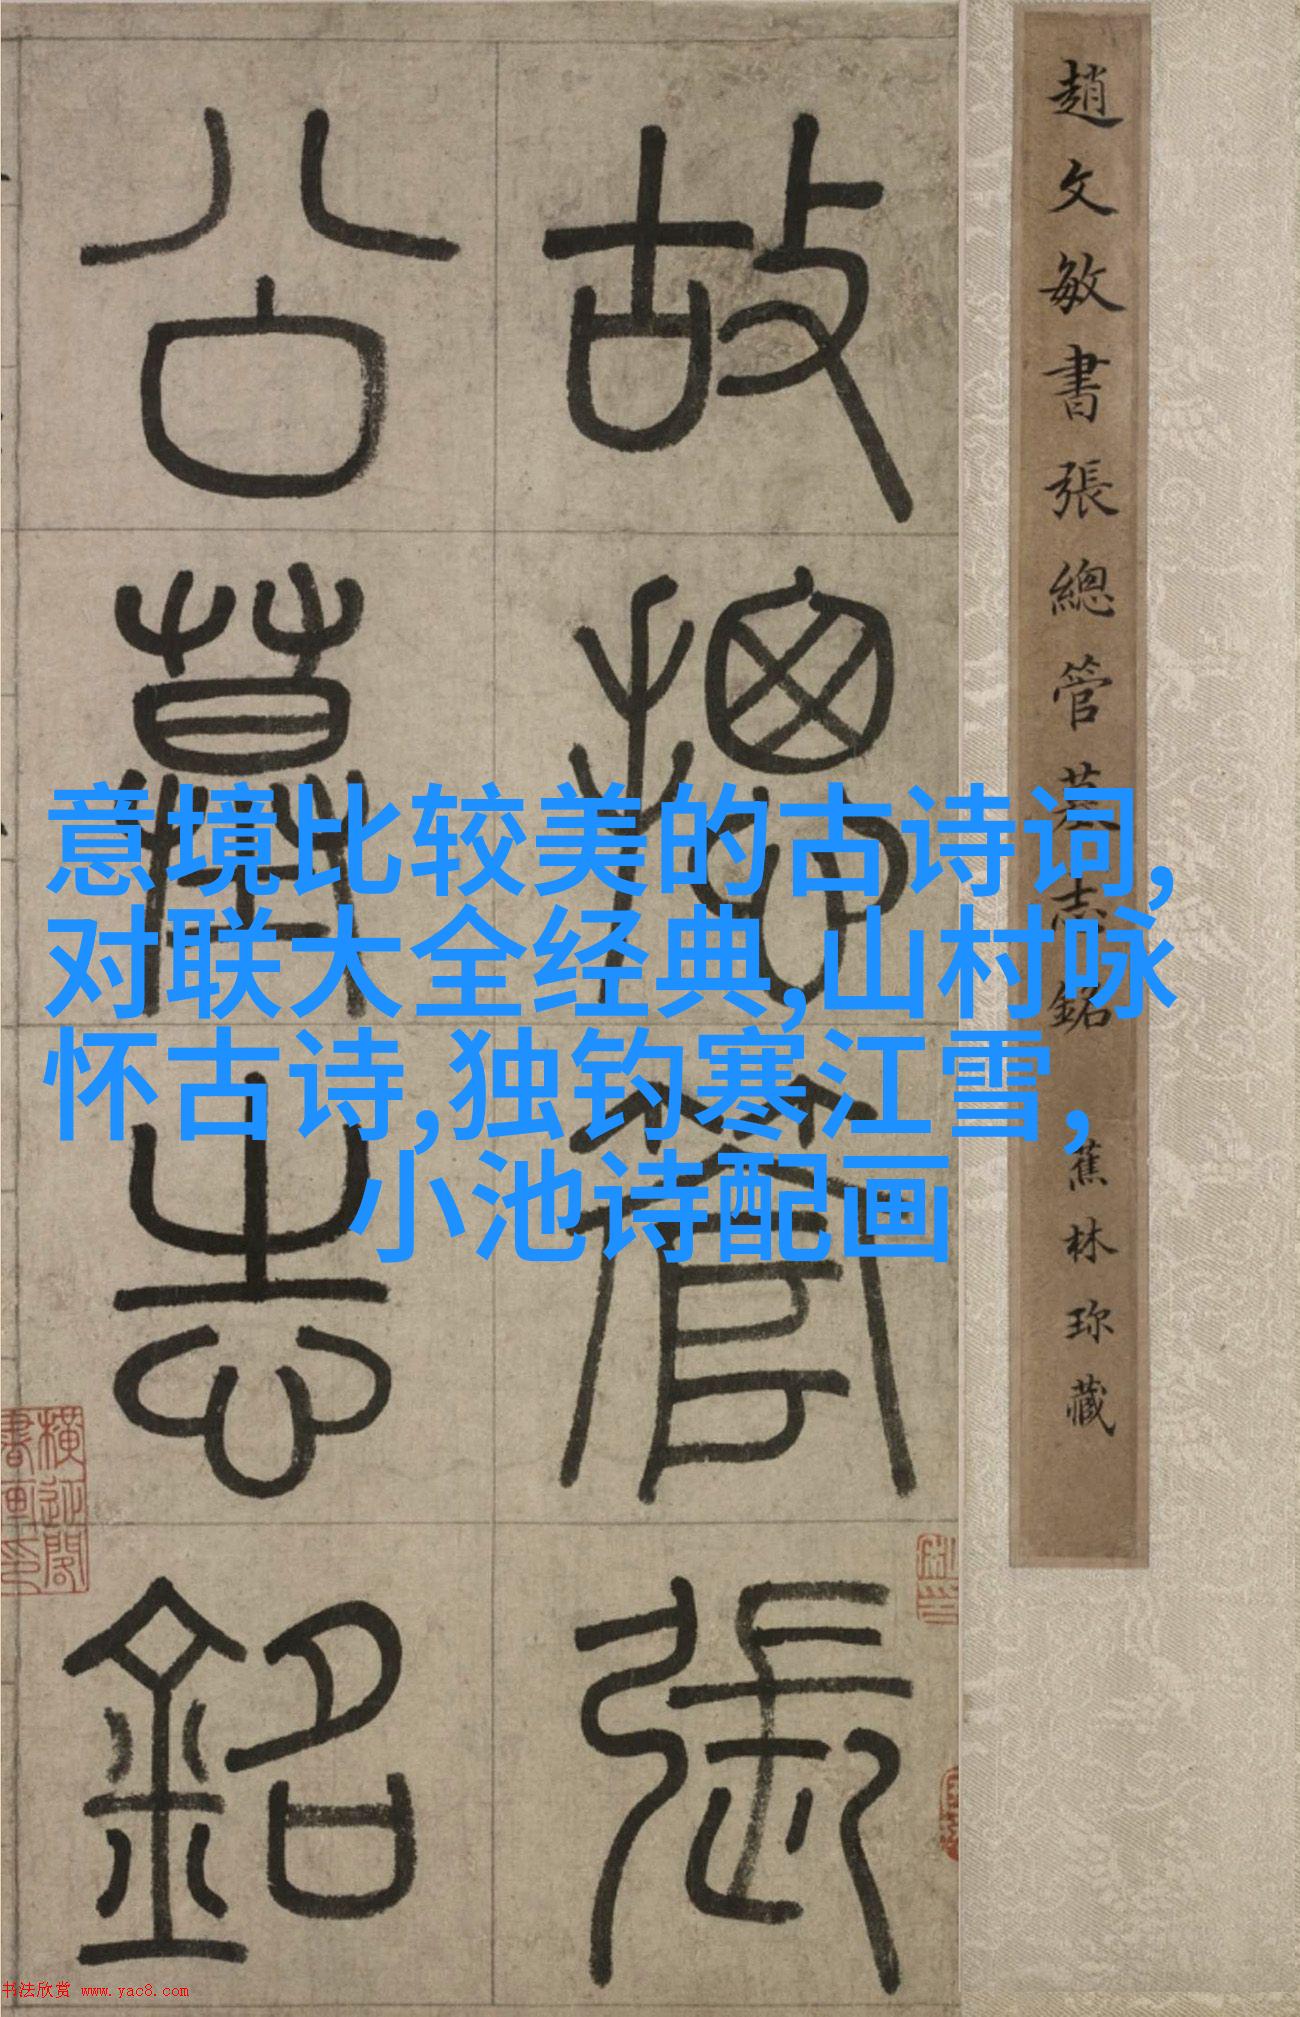 趙文敏書張總管墓志銘 蕉林珎藏
故摠管張
公墓志銘
意境比较美的古诗词,
对联大全经典,山村咏
怀古诗,独钓寒江雪,
小池诗配画
书法欣赏 www.yac8.com